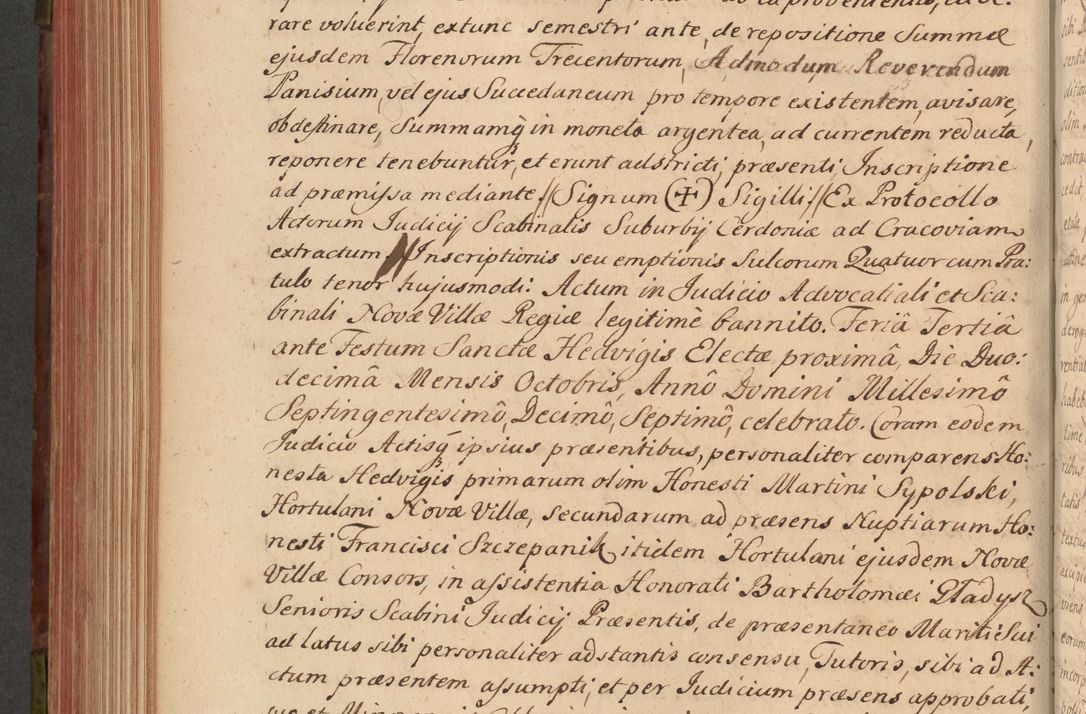 rare voluerint, extunc semestri ante, de repositione Summæ
ejusdem Florenorum Trecentorum, Admodum Reverendum
Panisium, vel ejus Succedaneum pro tempore existentem, avisare,
obdestinare, Summamq́ in moneta argentea, ad currentem reducta,
reponere tenebuntur, et erunt adstricti, præsenti Inscriptione
ad præmissa mediante.// (Signum (+) Sigilli.// Ex Protocollo
Actorum Judicij Scabinalis Suburbij Cerdoniæ ad Cracoviam
extractum.// Inscriptionis seu emptionis Sulcorum Quatuor cum Pra:
tulo tenor hujusmodi: Actum in Judicio Advocatiali et Sca:
binali Novæ Villæ Regiæ legitimè bannito. Feriâ Tertiâ
ante Festum Sanctæ Hedvigis Electæ proximâ, Die Duo:
decimâ Mensis Octobris, Annô Domini Millesimô
Septingentesimô, Decimô, Septimô, celebrato. Coram eodem
Judicio Actisq́ ipsius præsentibus, personaliter comparens Ho:
nesta Hedvigis primarum olim Honesti Martini Sypolski,
Hortulani Novæ Villæ, secundarum ad præsens Nuptiarum Ho:
nesti Francisci Szczepanik itidem Hortulani ejusdem Novæ
Villæ Consors, in assistentia Honorati Bartholomæi Gładysz
Senioris Scabini Judicij Præsentis, de præsentaneo Mariti Sui
ad latus sibi personaliter adstantis consensu, Tutoris, sibi ad A:
ctum præsentem assumpti, et per Judicium præsens approbati,